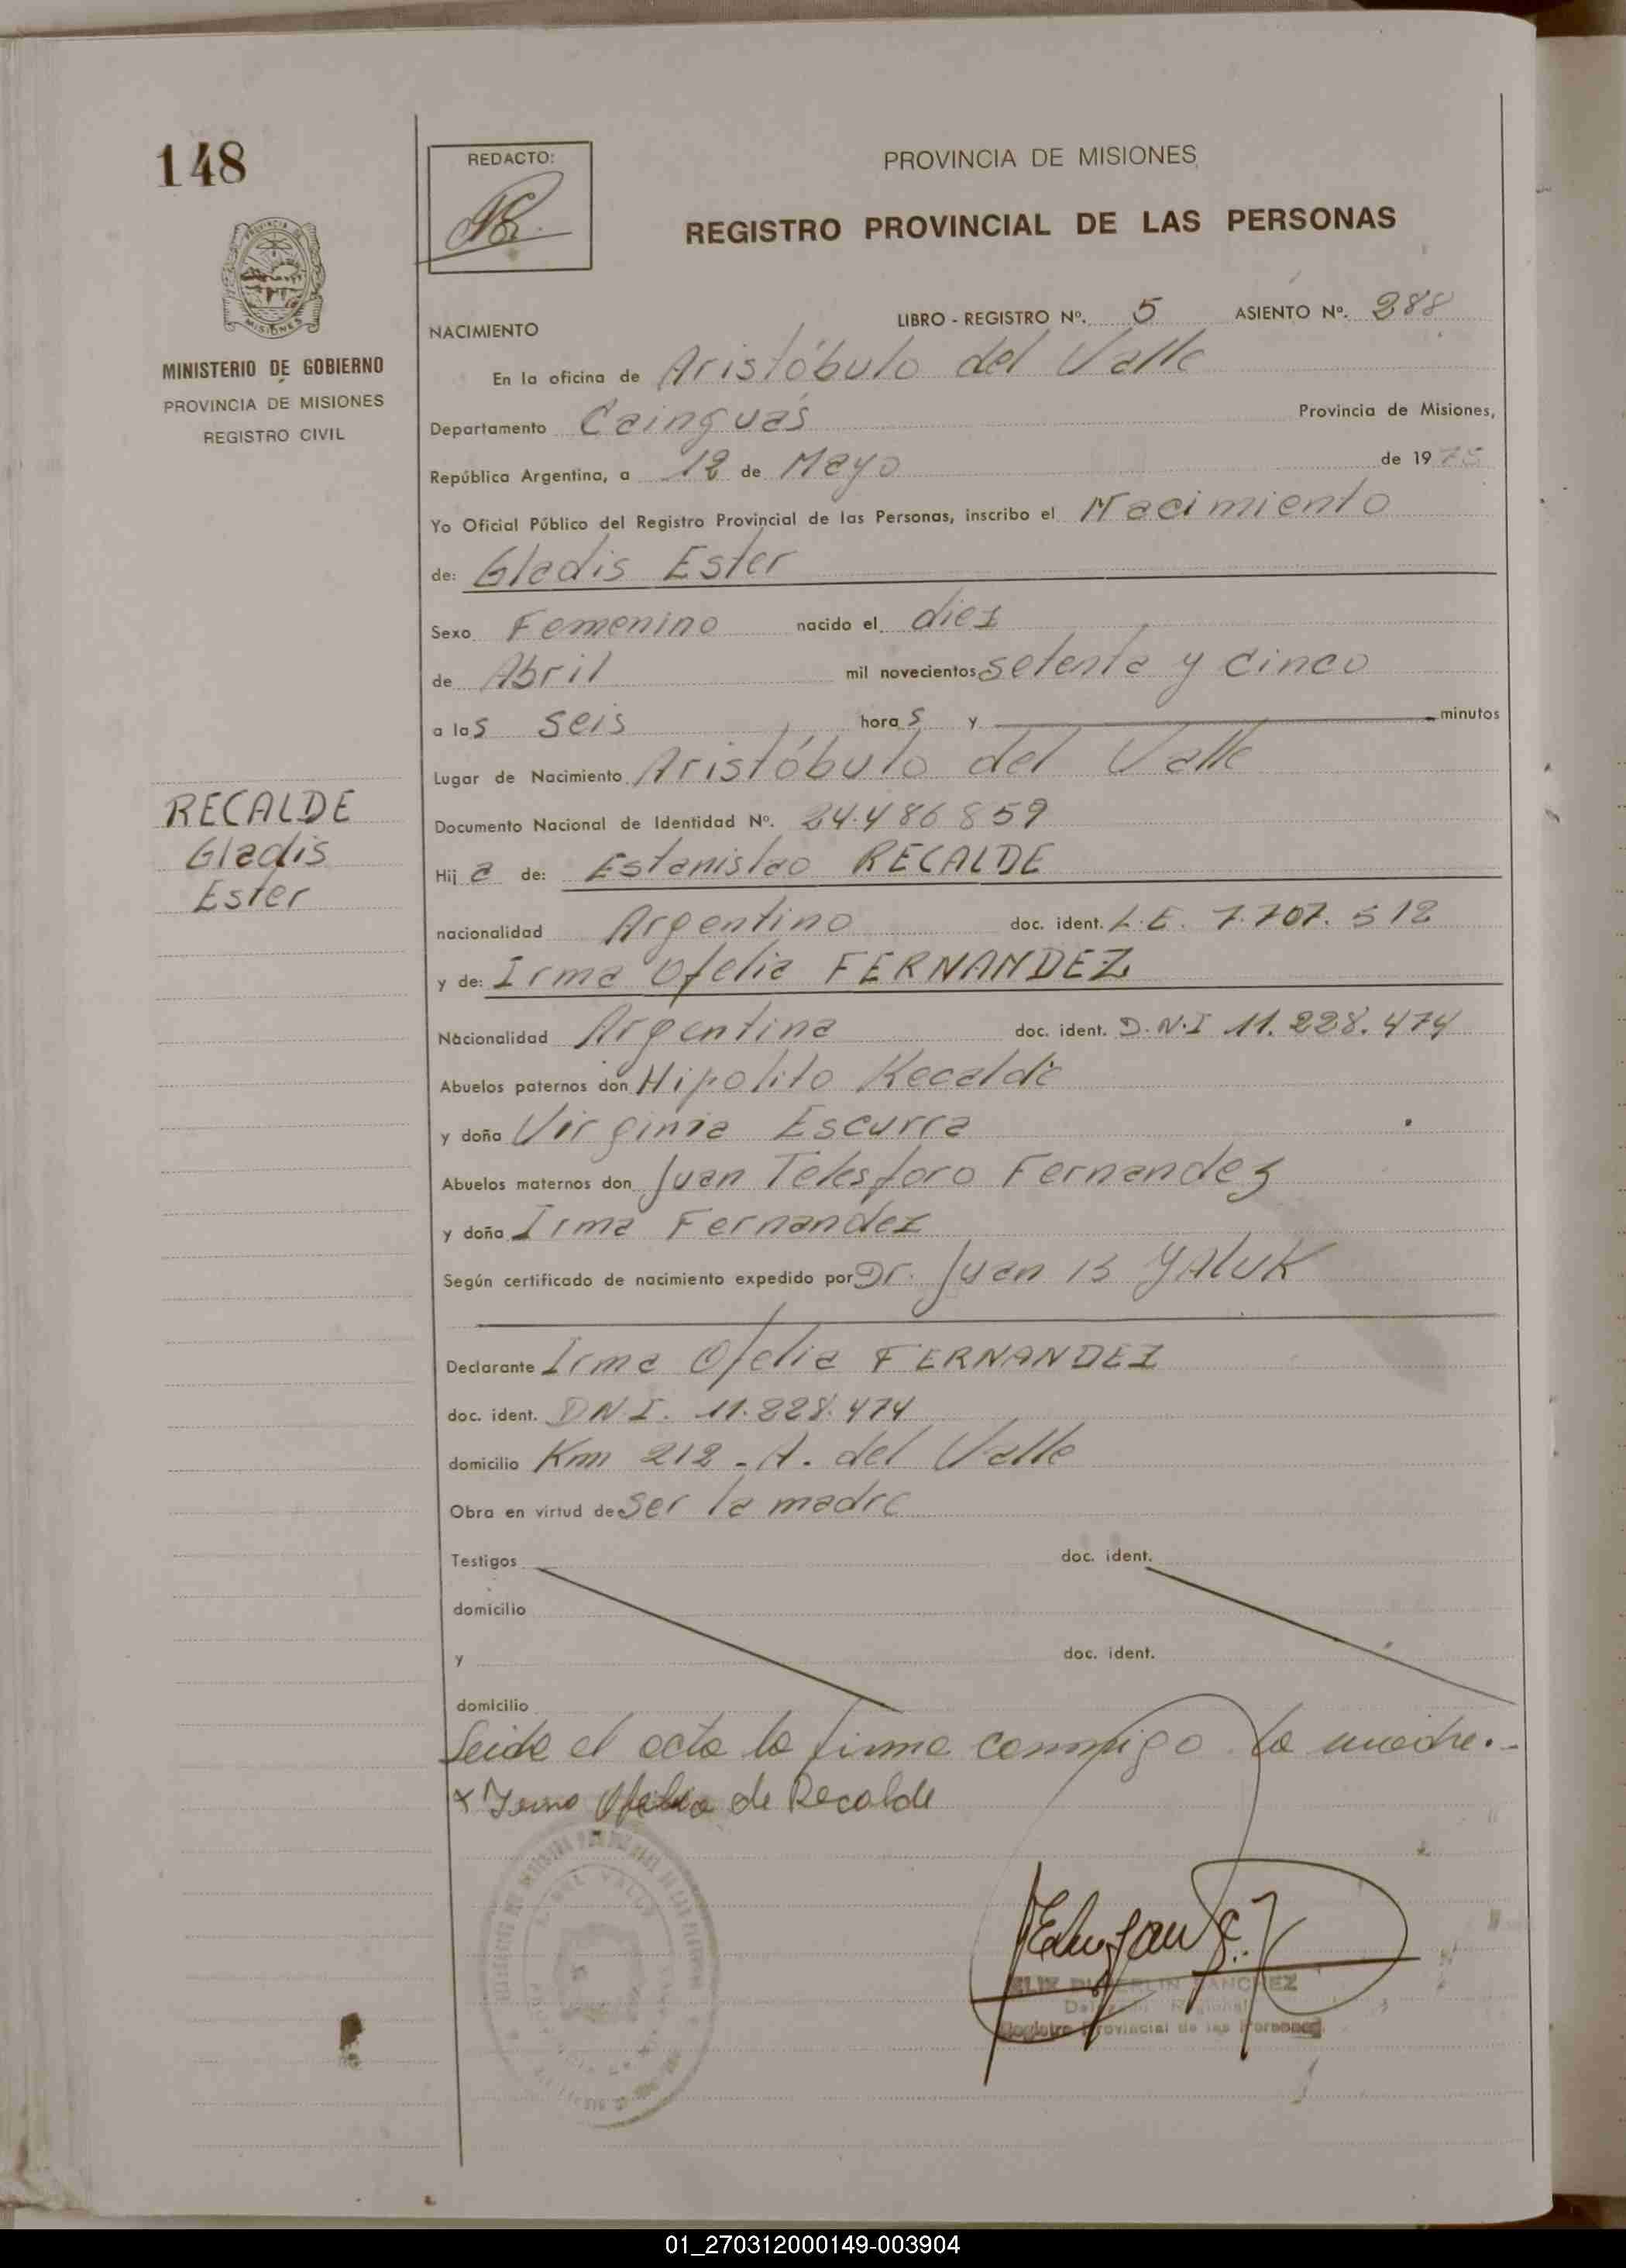 148
REDACTO:
PROVINCIA DE MISIONES
REGISTRO PROVINCIAL DE LAS PERSONAS
MISIONES
MINISTERIO DE GOBIERNO
PROVINCIA DE MISIONES
REGISTRO CIVIL
NACIMIENTO
LIBRO - REGISTRO Nº. 5 ASIENTO Nº. 288
En la oficina de Aristóbulo del Valle
Departamento Cainguás Provincia de Misiones,
República Argentina, a 12 de Mayo de 1975
Yo Oficial Público del Registro Provincial de las Personas, inscribo el Nacimiento
de: Gladis Ester
Sexo Femenino nacido el diez
de Abril mil novecientos setenta y cinco
a las seis horas y minutos
Lugar de Nacimiento Aristóbulo del Valle
RECALDE
Gladis
Ester
Documento Nacional de Identidad Nº. 24.486859
Hija de: Estanislao RECALDE
nacionalidad Argentino doc. ident. L.E. 7.707.512
y de: Irma Ofelia FERNANDEZ
Nacionalidad Argentina doc. ident. D.N.I 11.228.474
Abuelos paternos don Hipolito Recalde
y doña Virginia Escurra
Abuelos maternos don Juan Telesforo Fernandez
y doña Irma Fernandez
Según certificado de nacimiento expedido por Dr. Juan B YALUK
Declarante Irma Ofelia FERNANDEZ
doc. ident. DNI. 11.228.474
domicilio Km 212 - A. del Valle
Obra en virtud de ser la madre
Testigos doc. ident.
domicilio
y doc. ident.
domicilio
Leida el acta la firma conmigo la madre.-
x Irma Ofelia de Recalde
SANCHEZ
Registro Provincial de las Personas
01_270312000149-003904